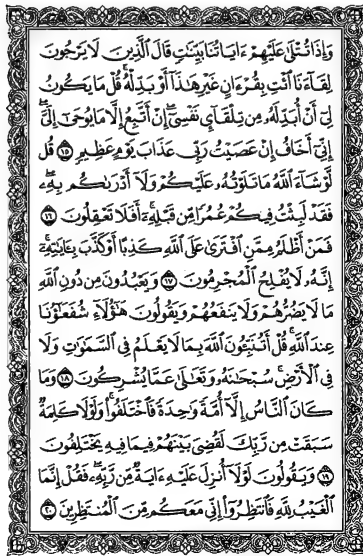 وَإِذَا تُتْلَىٰ عَلَيْهِمْ ءَايَاتُنَا بَيِّنَٰتٍ قَالَ ٱلَّذِينَ لَا يَرْجُونَ
لِقَآءَنَا ٱئْتِ بِقُرْءَانٍ غَيْرِ هَٰذَآ أَوْ بَدِّلْهُ قُلْ مَا يَكُونُ
لِىٓ أَنْ أُبَدِّلَهُۥ مِن تِلْقَآئِ نَفْسِىٓ إِنْ أَتَّبِعُ إِلَّا مَا يُوحَىٰٓ إِلَىَّ
إِنِّىٓ أَخَافُ إِنْ عَصَيْتُ رَبِّى عَذَابَ يَوْمٍ عَظِيمٍ ١٥ قُل
لَّوْ شَآءَ ٱللَّهُ مَا تَلَوْتُهُۥ عَلَيْكُمْ وَلَآ أَدْرَىٰكُم بِهِۦ
فَقَدْ لَبِثْتُ فِيكُمْ عُمُرًا مِّن قَبْلِهِۦٓ أَفَلَا تَعْقِلُونَ ١٦
فَمَنْ أَظْلَمُ مِمَّنِ ٱفْتَرَىٰ عَلَى ٱللَّهِ كَذِبًا أَوْ كَذَّبَ بِـَٔايَٰتِهِۦٓ
إِنَّهُۥ لَا يُفْلِحُ ٱلْمُجْرِمُونَ ١٧ وَيَعْبُدُونَ مِن دُونِ ٱللَّهِ
مَا لَا يَضُرُّهُمْ وَلَا يَنفَعُهُمْ وَيَقُولُونَ هَٰٓؤُلَآءِ شُفَعَٰٓؤُنَا
عِندَ ٱللَّهِ قُلْ أَتُنَبِّـُٔونَ ٱللَّهَ بِمَا لَا يَعْلَمُ فِى ٱلسَّمَٰوَٰتِ وَلَا
فِى ٱلْأَرْضِ سُبْحَٰنَهُۥ وَتَعَٰلَىٰ عَمَّا يُشْرِكُونَ ١٨ وَمَا
كَانَ ٱلنَّاسُ إِلَّآ أُمَّةً وَٰحِدَةً فَٱخْتَلَفُوا۟ وَلَوْلَا كَلِمَةٌ
سَبَقَتْ مِن رَّبِّكَ لَقُضِىَ بَيْنَهُمْ فِيمَا فِيهِ يَخْتَلِفُونَ
١٩ وَيَقُولُونَ لَوْلَآ أُنزِلَ عَلَيْهِ ءَايَةٌ مِّن رَّبِّهِۦ فَقُلْ إِنَّمَا
ٱلْغَيْبُ لِلَّهِ فَٱنتَظِرُوٓا۟ إِنِّى مَعَكُم مِّنَ ٱلْمُنتَظِرِينَ ٢٠